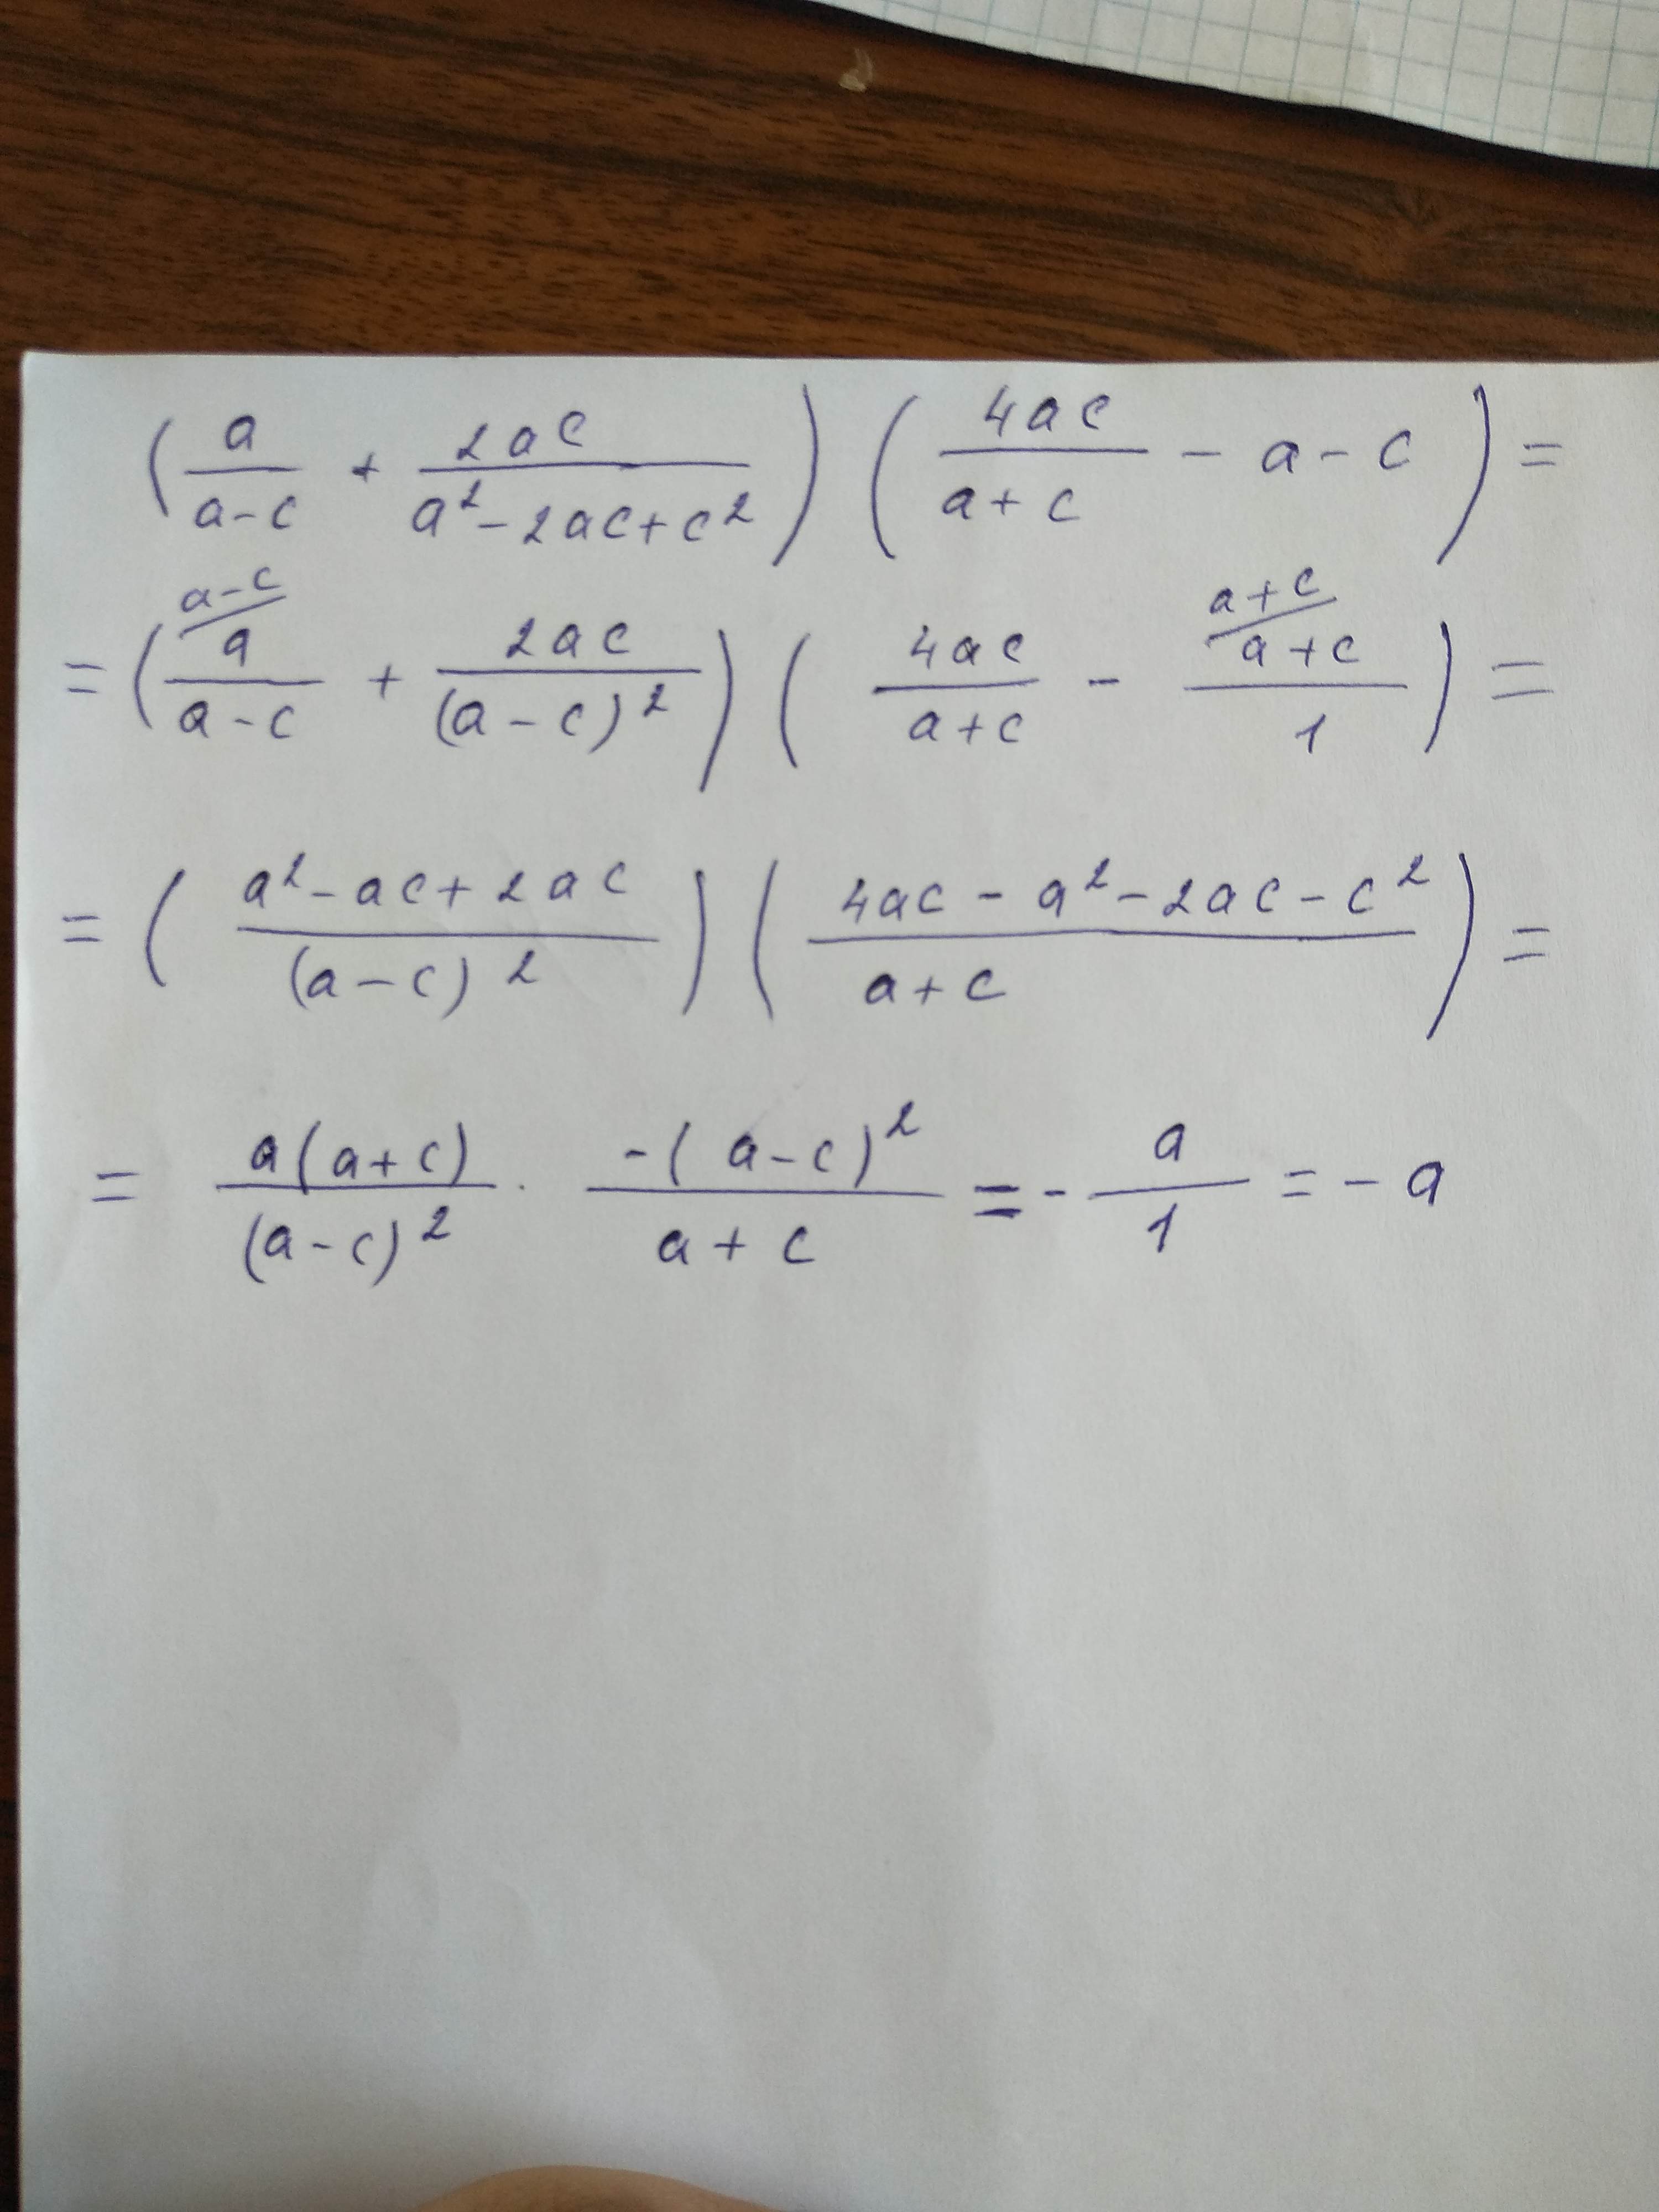 (a/(a-c) + 2ac/(a²-2ac+c²)) (4ac/(a+c) - a-c) =
a-c a+c
= (a/(a-c) + 2ac/(a-c)²) (4ac/(a+c) - (a+c)/1) =
= ((a²-ac+2ac)/(a-c)²) ((4ac-a²-2ac-c²)/(a+c)) =
= a(a+c)/(a-c)² · -(a-c)²/(a+c) = - a/1 = -a